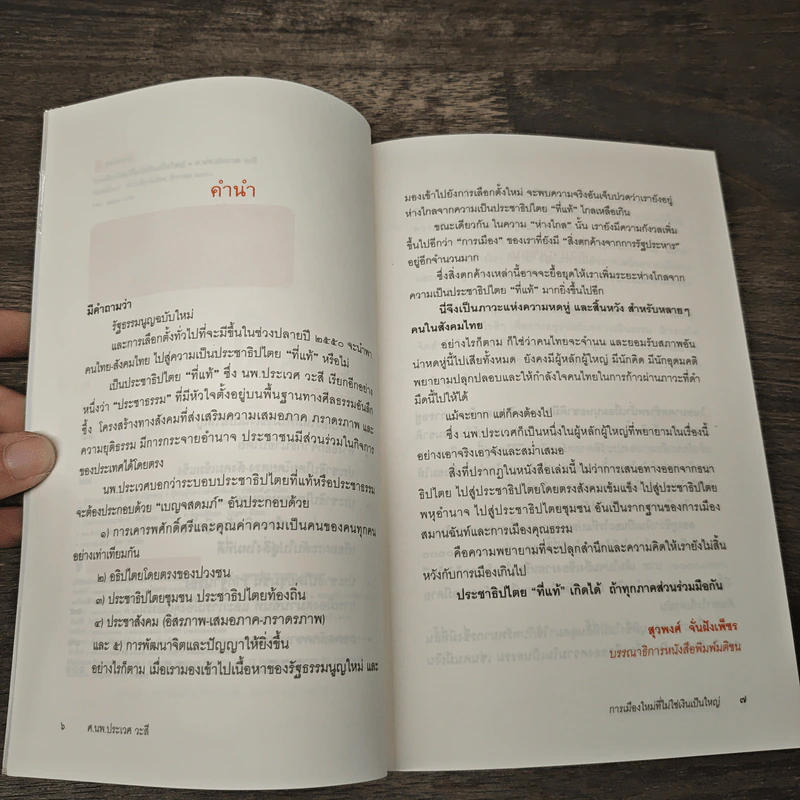 คำนำ
มีคำถามว่า
รัฐธรรมนูญฉบับใหม่
และการเลือกตั้งทั่วไปที่จะมีขึ้นในช่วงปลายปี ๒๕๕๐ จะนำพา
คนไทย-สังคมไทย ไปสู่ความเป็นประชาธิปไตย “ที่แท้” หรือไม่
เป็นประชาธิปไตย “ที่แท้” ซึ่ง นพ.ประเวศ วะสี เรียกอีกอย่าง
หนึ่งว่า “ประชาธรรม” ที่มีหัวใจตั้งอยู่บนพื้นฐานทางศีลธรรมอันลึก
ซึ้ง โครงสร้างทางสังคมที่ส่งเสริมความเสมอภาค ภราดรภาพ และ
ความยุติธรรม มีการกระจายอำนาจ ประชาชนมีส่วนร่วมในกิจการ
ของประเทศได้โดยตรง
นพ.ประเวศบอกว่าระบอบประชาธิปไตยที่แท้หรือประชาธรรม
จะต้องประกอบด้วย “เบญจสดมภ์” อันประกอบด้วย
๑) การเคารพศักดิ์ศรีและคุณค่าความเป็นคนของคนทุกคน
อย่างเท่าเทียมกัน
๒) อธิปไตยโดยตรงของปวงชน
๓) ประชาธิปไตยชุมชน ประชาธิปไตยท้องถิ่น
๔) ประชาสังคม (อิสรภาพ-เสมอภาค-ภราดรภาพ)
และ ๕) การพัฒนาจิตและปัญญาให้ยิ่งขึ้น
อย่างไรก็ตาม เมื่อเรามองเข้าไปเนื้อหาของรัฐธรรมนูญใหม่ และ
๖ ศ.นพ.ประเวศ วะสี
มองเข้าไปยังการเลือกตั้งใหม่ จะพบความจริงอันเจ็บปวดว่าเรายังอยู่
ห่างไกลจากความเป็นประชาธิปไตย “ที่แท้” ไกลเหลือเกิน
ขณะเดียวกัน ในความ “ห่างไกล” นั้น เรายังมีความกังวลเพิ่ม
ขึ้นไปอีกว่า “การเมือง” ของเราที่ยังมี “สิ่งตกค้างจากการรัฐประหาร”
อยู่อีกจำนวนมาก
ซึ่งสิ่งตกค้างเหล่านี้อาจจะยื้อยุดให้เราเพิ่มระยะห่างไกลจาก
ความเป็นประชาธิปไตย “ที่แท้” มากยิ่งขึ้นไปอีก
นี่จึงเป็นภาวะแห่งความหดหู่ และสิ้นหวัง สำหรับหลายๆ
คนในสังคมไทย
อย่างไรก็ตาม ก็ใช่ว่าคนไทยจะจำนน และยอมรับสภาพอัน
น่าหดหู่นี้ไปเสียทั้งหมด ยังคงมีผู้หลักผู้ใหญ่ มีนักคิด มีนักอุดมคติ
พยายามปลุกปลอบและให้กำลังใจคนไทยในการก้าวผ่านภาวะที่ดำ
มืดนี้ไปให้ได้
แม้จะยาก แต่ก็คงต้องไป
ซึ่ง นพ.ประเวศก็เป็นหนึ่งในผู้หลักผู้ใหญ่ที่พยายามในเรื่องนี้
อย่างเอาจริงเอาจังและสม่ำเสมอ
สิ่งที่ปรากฏในหนังสือเล่มนี้ ไม่ว่าการเสนอทางออกจากธนา
ธิปไตย ไปสู่ประชาธิปไตยโดยตรงสังคมเข้มแข็ง ไปสู่ประชาธิปไตย
พหุอำนาจ ไปสู่ประชาธิปไตยชุมชน อันเป็นรากฐานของการเมือง
สมานฉันท์และการเมืองคุณธรรม
คือความพยายามที่จะปลุกสำนึกและความคิดให้เรายังไม่สิ้น
หวังกับการเมืองเกินไป
ประชาธิปไตย “ที่แท้” เกิดได้ ถ้าทุกภาคส่วนร่วมมือกัน
สุวพงศ์ จั่นฝังเพ็ชร
บรรณาธิการหนังสือพิมพ์มติชน
การเมืองใหม่ที่ไม่ใช่เงินเป็นใหญ่ ๗